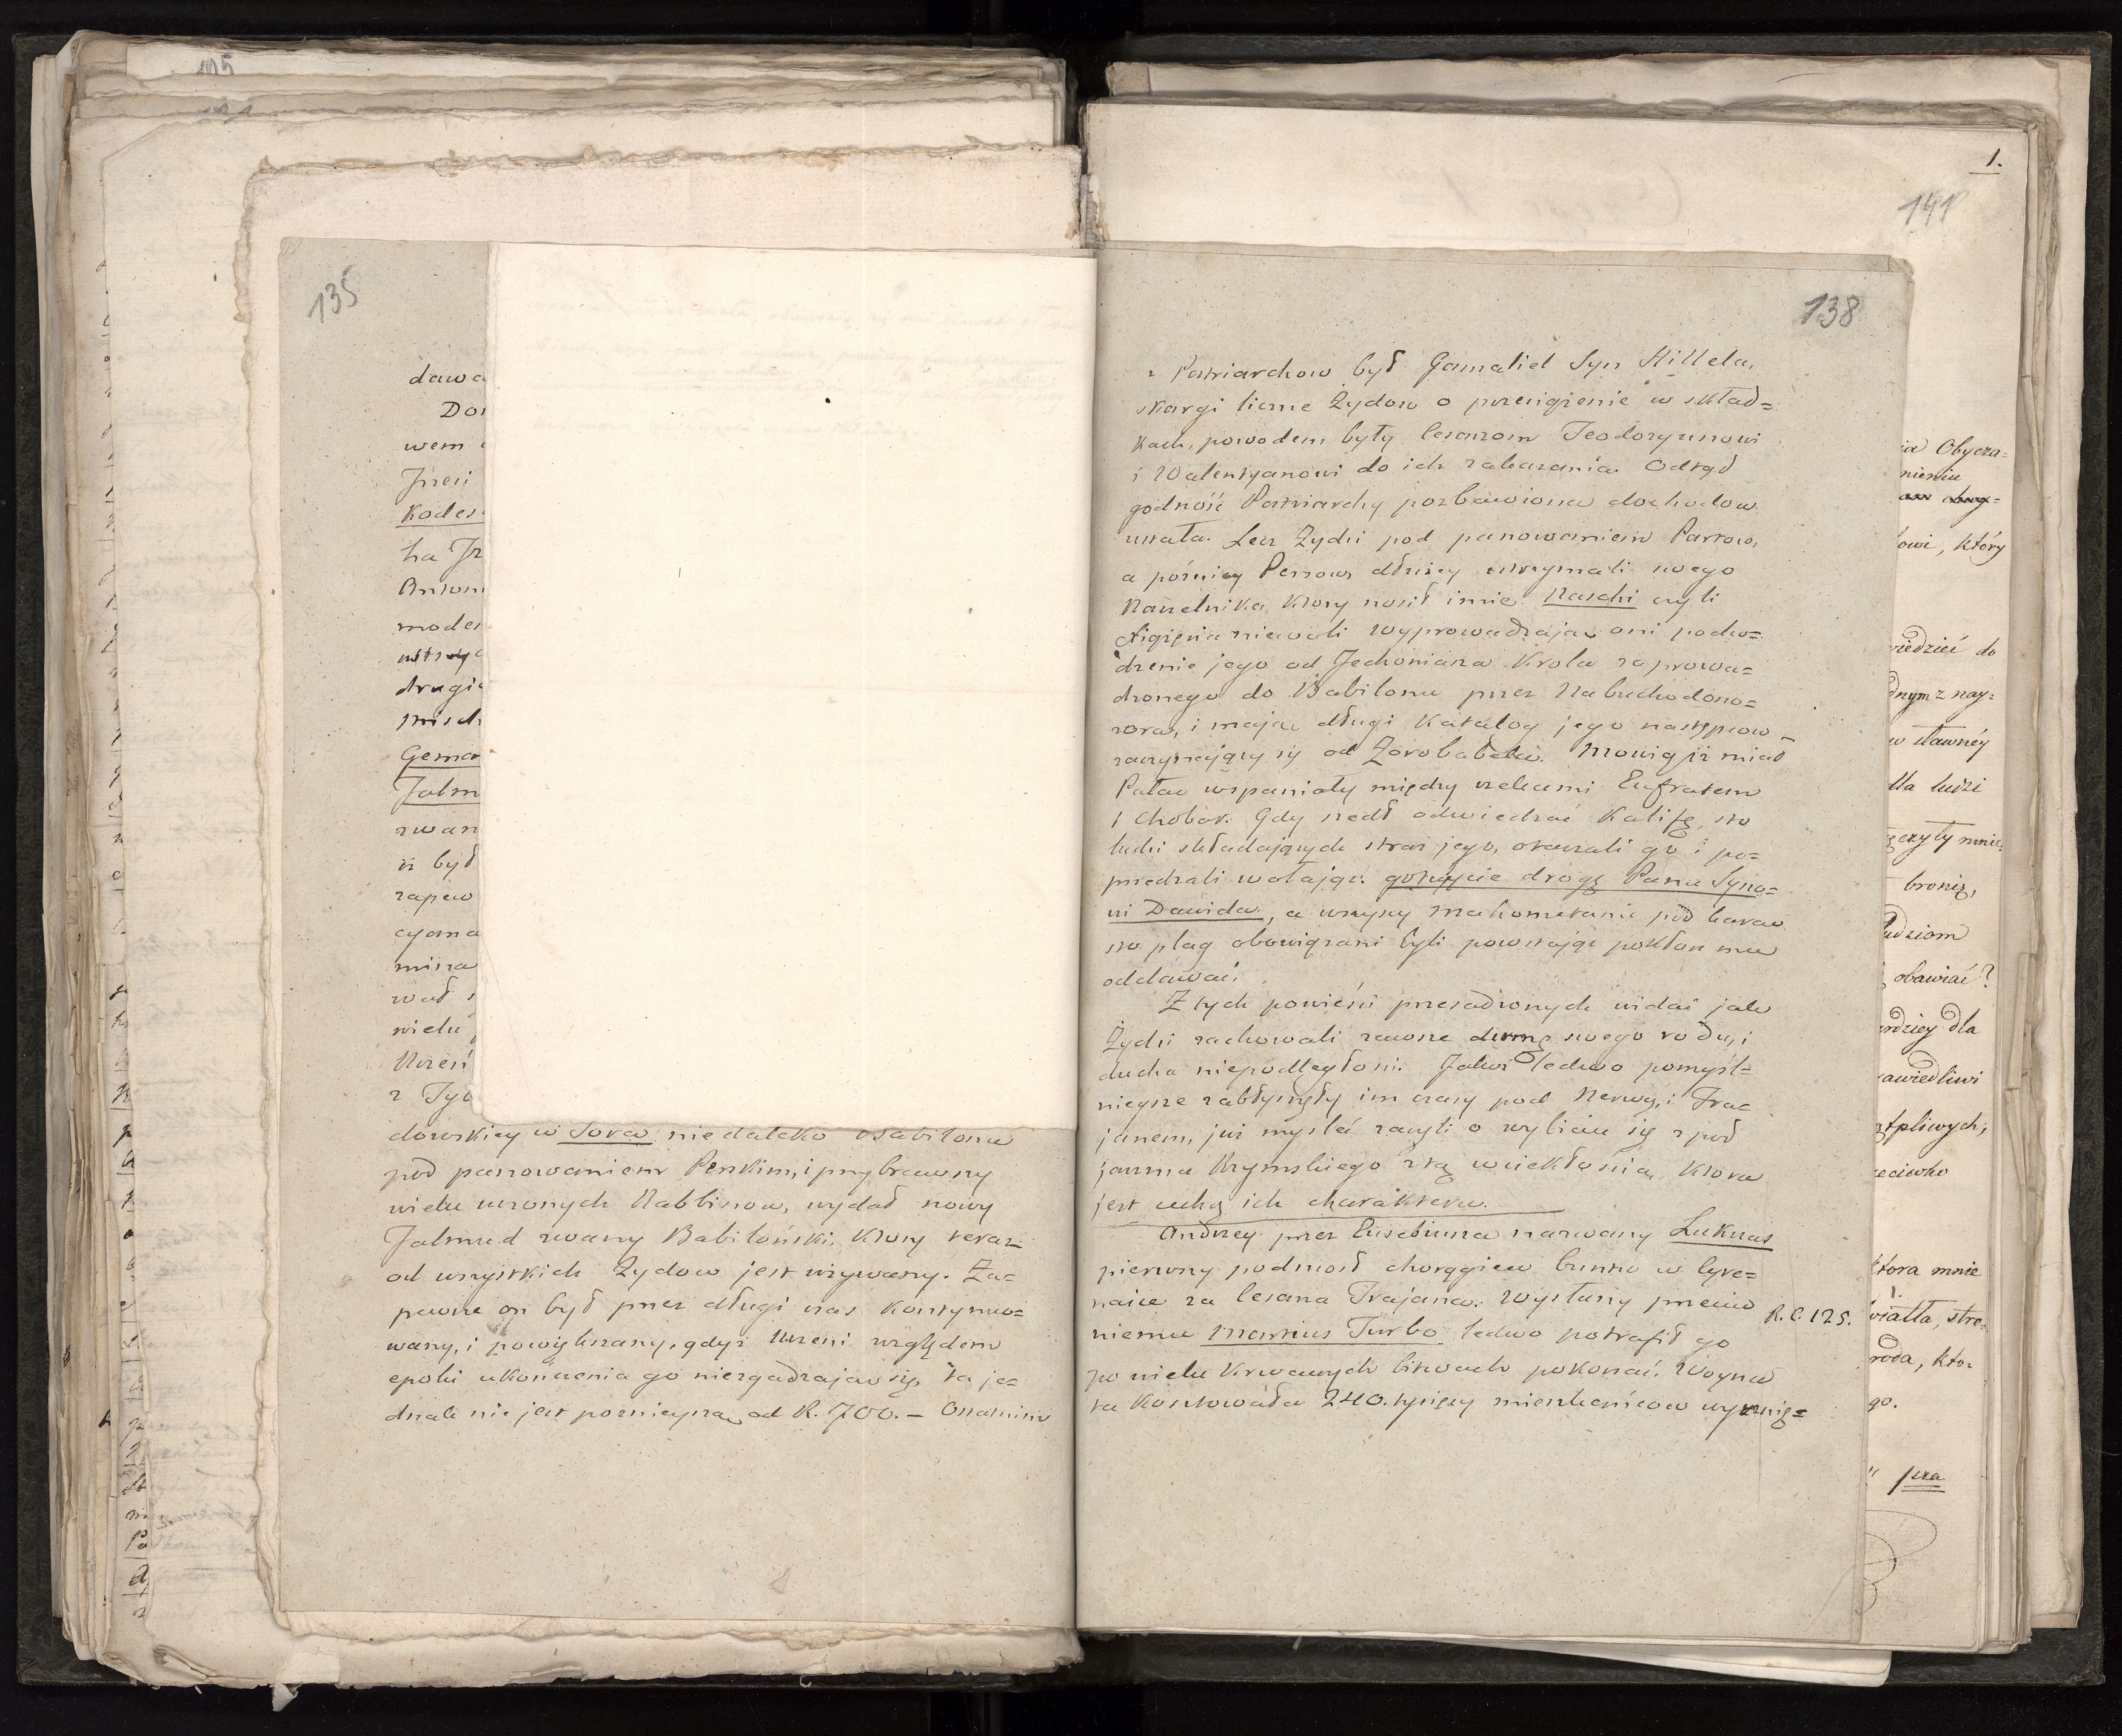 135
dawa
Do
wem
Jzei
Kodex
ha Jz
Anton
mode
drugi
misch
Gemar
Talm
zwan
iż był
zapew
cyana
misza
wał
wielu
Uczeń
z Tyb
dowskiey w Sora niedaleko Babilonu
pod panowaniem Perskim, i przybrawszy
wielu uczonych Rabbinow, wydał nowy
Talmud zwany Babiloński, Ktory teraz
od wszystkich Zydow jest używany. Za=
pewne on był przez długi czas kontynuo=
wany, i powiększany, gdyż Uczeni względem
epoki ukończenia go niezgadzają się, ta je=
dnak nie jest poznieysza od R. 700. – Ostatnim
138
z Patriarchow był Gamaliel Syn Hillela,
skargi liczne Zydow o przeciążenie w skład=
kach, powodem były Cesarzom Teodozyuszowi
i Walentyanowi do ich zakazania. Odtąd
godność Patriarchy pozbawiona dochodow
ustała. Lecz Zydzi pod panowaniem Partow,
a poźniey Persow, dłużey utrzymali swego
Naczelnika, Ktory nosił imie Naschi czyli
Xiążęcia niewoli wyprowadzają oni pocho=
dzenie jego od Jechoniasza Krola zaprowa=
dzonego do Babilonu przez Nabuchodono=
zora, i mają długi Katalog jego następcow
zaczynający się od Zorobabela. Mowią iż miał
Pałac wspaniały między rzekami Eufratem
i Chobor. Gdy szedł odwiedzać Kalifę, sto
ludzi składających straż jego, otaczali go i po=
przedzali wołając: gotuycie drogę Panu Syno=
wi Dawida, a wszyscy Mahometanie pod karą
sto plag obowiązani byli powstając pokłon mu
oddawać.
Z tych powieści przesadzonych widać jak
Żydzi zachowali zawsze dumę swego rodu, i
ducha niepodległości. Jakoż ledwo pomyśl=
nieysze zabłysnęły im czasy pod Nerwą, i Tra=
janem, już myśleć zaczęli o wybiciu się z pod
jarzma Rzymskiego z tą wściekłością, Ktora
jest cechą ich charakteru.
Andrzey przez Euzebiusza nazwany Lukuas
pierwszy podniosł chorągiew buntu w Cyre=
naice za Cesarza Trajana. Wysłany przeciw
R. C. 125.
niemu Marcius Turbo ledwo potrafił go
po wielu Krwawych bitwach pokonać. Woyna
ta Kosztowała 240. tysięcy mieszkańcow wyrznię=
1.
141
ia Obycza=
nieniu
owi, który
wiedzieć do
dnym z nay=
w sławnéy
dla ludzi
bronią,
ludziom
obawiać?
ardziey dla
awiedliwi
ątpliwych;
zeciwko
która mnie
wiatła, stro=
roda, któ=
go.